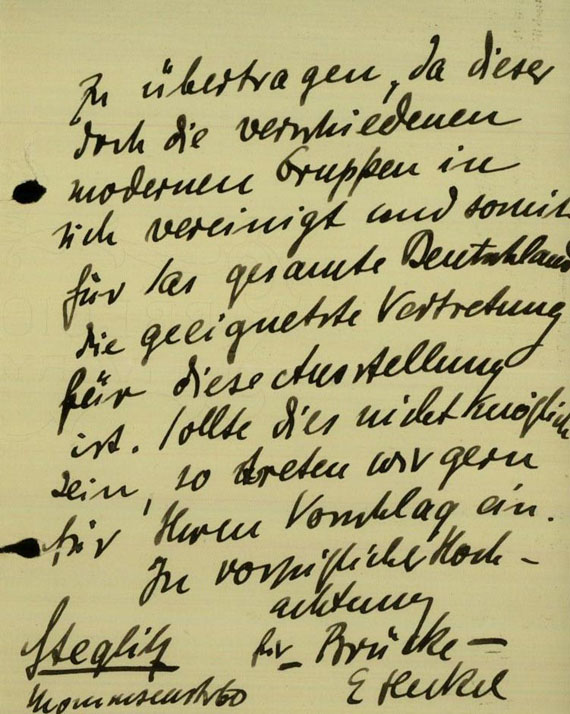 zu übertragen, da dieser
doch die verschiedenen
modernen Gruppen in
sich vereinigt und somit
für das gesamte Deutschland
die geeignetste Vertretung
für diese Ausstellung
ist. Sollte dies nicht möglich
sein, so treten wir gern
für Ihren Vorschlag ein.
In vorzüglicher Hoch-
achtung
für „Brücke“
E Heckel
Steglitz
Mommsenstr 60